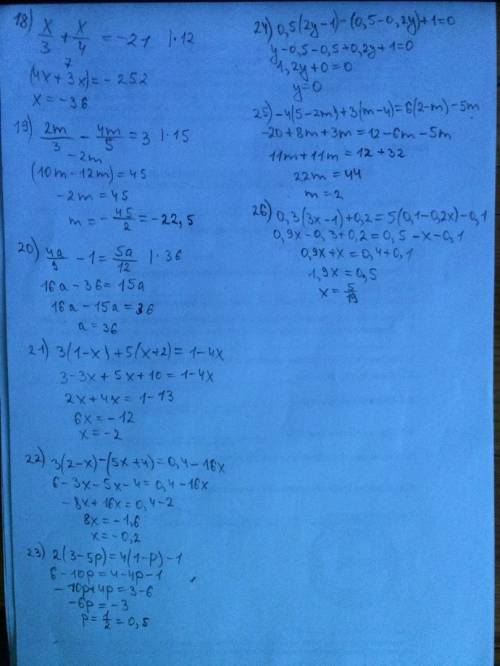 18) x/3 + x/4 = -21 |·12
7
(4x+3x) = -252
x = -36
19) 2m/3 - 4m/5 = 3 |·15
-2m
(10m-12m) = 45
-2m = 45
m = -45/2 = -22,5
20) 4a/9 - 1 = 5a/12 |·36
16a-36 = 15a
16a-15a = 36
a = 36
21) 3(1-x)+5(x+2) = 1-4x
3-3x+5x+10 = 1-4x
2x+4x = 1-13
6x = -12
x = -2
22) 3(2-x)-(5x+4) = 0,4-16x
6-3x-5x-4 = 0,4-16x
-8x+16x = 0,4-2
8x = -1,6
x = -0,2
23) 2(3-5p) = 4(1-p)-1
6-10p = 4-4p-1
-10p+4p = 3-6
-6p = -3
p = 1/2 = 0,5
24) 0,5(2y-1)-(0,5-0,2y)+1=0
y-0,5-0,5+0,2y+1=0
1,2y+0=0
y=0
25) -4(5-2m)+3(m-4)=6(2-m)-5m
-20+8m+3m=12-6m-5m
11m+11m=12+32
22m=44
m=2
26) 0,3(3x-1)+0,2=5(0,1-0,2x)-0,1
0,9x-0,3+0,2=0,5-x-0,1
0,9x+x=0,4+0,1
1,9x=0,5
x=5/19